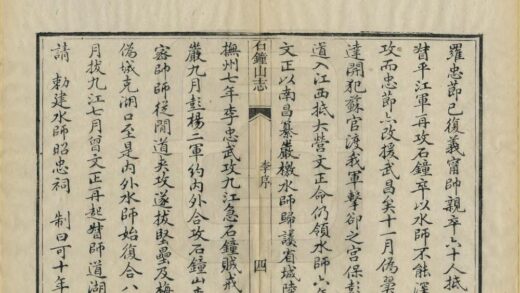 羅忠節已復義甯帥親卒六十人抵
督平江軍再攻石鐘卒以水師不能渾
攻而忠節亦改援武昌矣十一月偽翼
達開犯蘇官渡我軍擊卻之宮保彭
道入江西抵大營文正命仍領水師六
文正以南昌綦嚴檄水師歸護省城陸
石鐘山志 李序 四
撫州七年李忠武攻九江急石鐘賊戒
嚴九月彭楊二軍約內外合攻石鐘山
密帥師從間道夾攻遂拔堅壘及梅
偽城克湖口至是內外水師始復合八
月拔九江七月曾文正再起督師道湖
請 勅建水師昭忠祠 制曰可十年